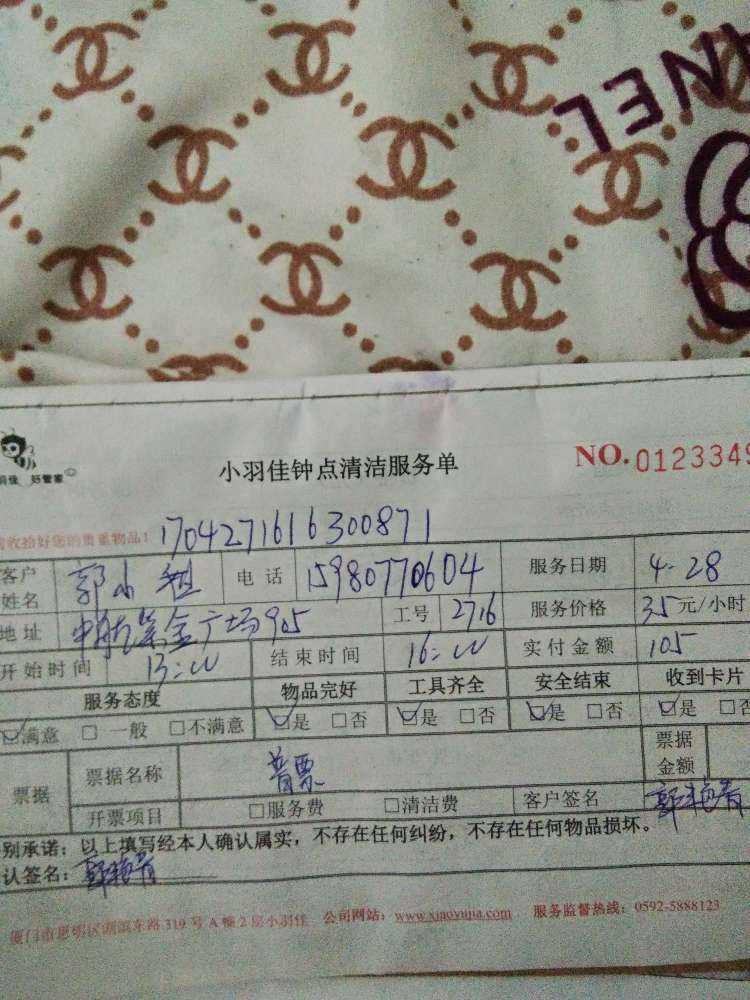 NEL
好管家
小羽佳钟点清洁服务单
NO.0123349
收拾好您的贵重物品! 1704271616300871
客户姓名 郭小姐 电话 15980770604 服务日期 4-28
地址 中航紫金广场905 工号 2716 服务价格 35元/小时
开始时间 13:00 结束时间 16:00 实付金额 105
服务态度 物品完好 工具齐全 安全结束 收到卡片
☑满意 □一般 □不满意 ☑是 □否 ☑是 □否 ☑是 □否 ☑是 □否
票据 票据名称 普票 票据金额
开票项目 □服务费 □清洁费 客户签名
别承诺：以上填写经本人确认属实，不存在任何纠纷，不存在任何物品损坏。
认签名：
厦门市思明区湖滨东路319号A幢2层小羽佳 公司网站：www.xiaoyujia.com 服务监督热线：0592-5888123